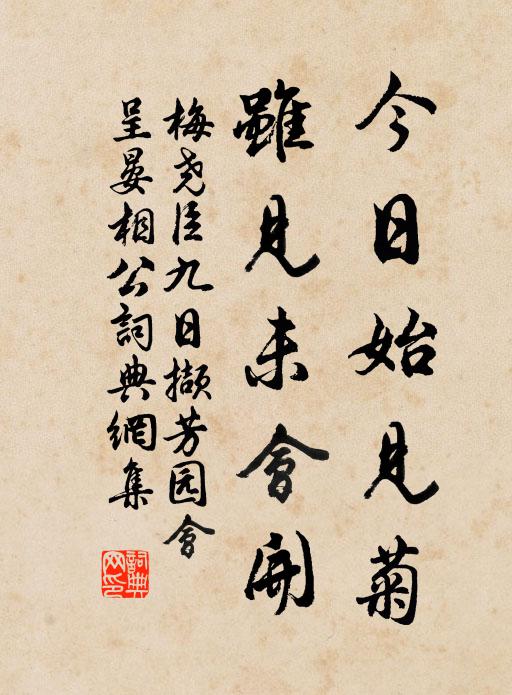 今日始見菊
雖見未會開
梅尧臣九日撷芳园會
呈晏相公詞典網集
詞典
网印